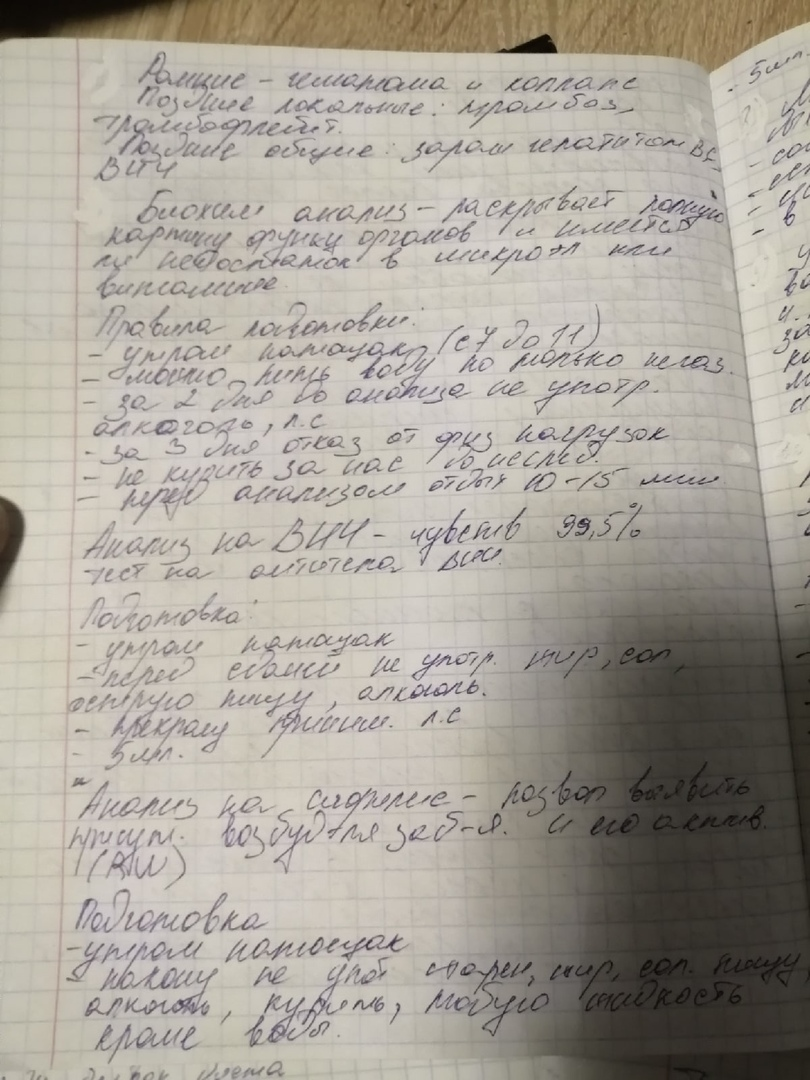 Ранние - гематома и коллапс
Поздние локальные: тромбоз,
тромбофлебит.
Поздние общие: зараж гепатитом В С
ВИЧ
Биохим анализ - раскрывает полную
картину функц органов и имеется
ли недостаток в микроэл или
витамине.
Правила подготовки:
- утром натощак (с 7 до 11)
- можно пить воду но только негаз.
- за 2 дня до анализа не употр.
алкоголь, л.с
- за 3 дня отказ от физ нагрузок
- не курить за час до исслед.
- перед анализом отдых 10-15 мин
Анализ на ВИЧ - чувств 99,5%
тест на антитела ВИЧ.
Подготовка:
- утром натощак
- перед сдачей не употр. жир, сол,
острую пищу, алкоголь.
- прекращ приним. л.с
- 5мл.
Анализ на сифилис - позвол выявить
присут. возбуд-ля заб-я. и его актив.
(RW)
Подготовка
- утром натощак
- накану не упот жарен, жир, сол. пищу
алкоголь, курить, любую жидкость
кроме воды.
- 5мл.